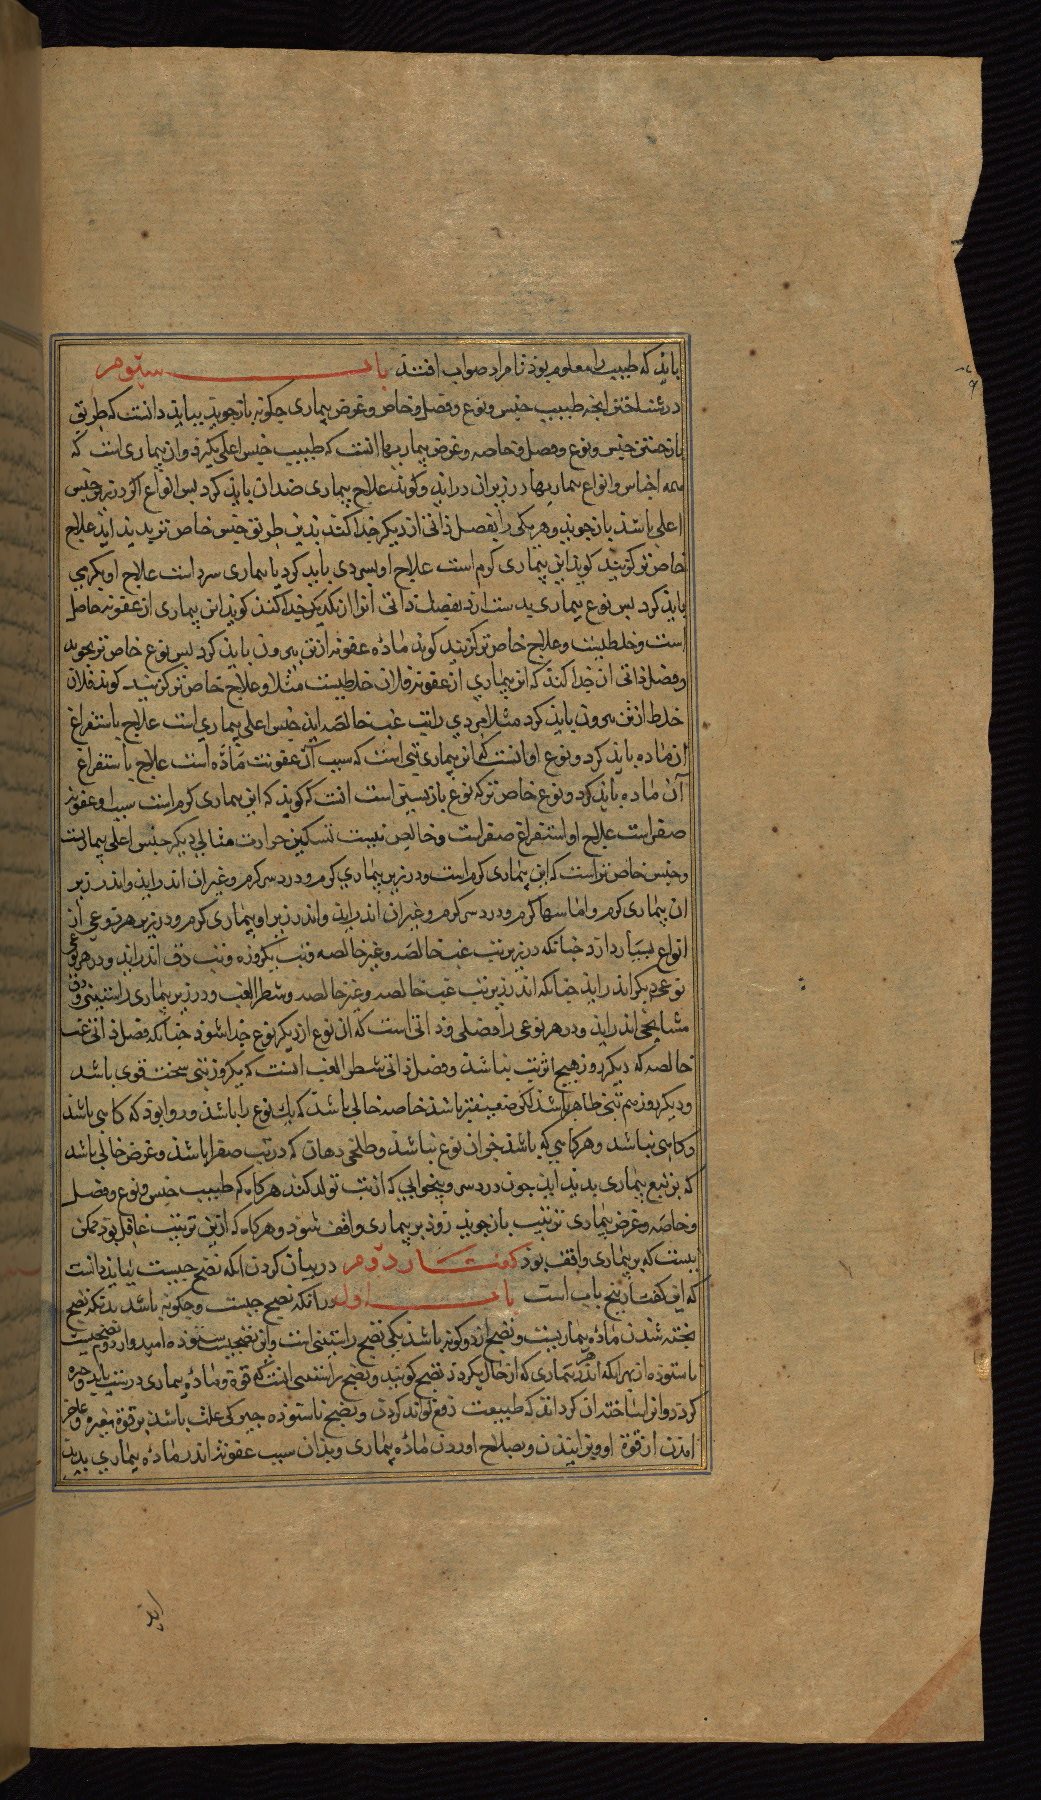 باید که طبیب را معلوم بوذ تا مراد صواب افتند باب سیوم
در شناختن انجه طبیب جنس و نوع و فصل و خاص و عرض بیماری چکونه بازجوید بباید دانست که طریق
بازجستن جنس و نوع و فصل و خاصه و عرض بیماریها انست که طبیب جنس اعلی بکیرذ و ان بیماری است که
همه اجناس و انواع بیماریها در زیر ان دراید و کویند علاج بیماری ضد ان باید کرد بس انواع
اعلی باشد بازجوید و هر یکی را بفصل ذاتی از دیکر جدا کند بدین طریق جنس خاص تر بدید اید علاج
خاص تر کزیند کوید این بیماری کرم است علاج او بسردی باید کرد یا بیماری سرد است علاج او بکرمی
باید کرد بس نوع بیماری بدست ارد بفصلهاء ذاتی انرا از یکدیکر جدا کند کوید این بیماری از عفونه حاصل
است و خلطیست و علاج خاص تر کزیند کوید ماده عفونه ازتن بیرون باید کرد بس نوع خاص تر بجوید
و فصل ذاتی ان جدا کند که این بیماری از عفونه فلان خلطیست مثلا و علاج خاص تر کزیند کوید فلان
خلط ازتن بیرون باید کرد مثلا مردی را تب غب خالصه اید جنس اعلی بیماری است علاج باستفراغ
ان ماده باید کرد و نوع او انست که این بیماری تبی است که سبب آن عفونت ماده است علاج باستفراغ
آن ماده باید کرد و نوع خاص تر که نوع بازبسین است انست که کوید که این بیماری کرم است سبب او عفونه
صفراست علاج او استفراغ صفراست و خالص نیست تسکین حرارت مثالی دیکر جنس اعلی بیماریست
و جنس خاص تر است که این بیماری کرم است و در زیر بیماری کرم و درد سر کرم و غیر ان اندر اید و اندر زیر
ان بیماری کرم و اماسها کرم و درد سر کرم و غیر ان اندراید و اندر زیر او بیماری کرم و در زیر هر نوعی ازن
انواع بسیار دارد جنانکه در زیر تب غب خالصه و غیر خالصه و تب یکروزه و تب دق اندر اید و در هر نوعی
نوعی دیکر اندراید جنانکه اندر زیر تب غب خالصه و غیر خالصه و شطر الغب و در زیر بیماری راستینی و دق
مشایخی اندراید و در هر نوعی را فصلی ذاتی است که ان نوع از دیکر نوع جدا شود جنانکه فصل ذاتی غب
خالصه که دیکر روز هیچ اثر تب نباشد و فصل ذاتی شطر الغب انست که یکروز تبی سخت قوی باشد
و دیکر روز هم تبی ظاهر باشد لکن ضعیفتر باشد خاصه خالی باشد که یک نوع را باشد و روا بود که کاهی باشد
و کاهی نباشد و هر کاهی که باشد جز ان نوع نباشد و طلخی دهان که در تب صفرا باشد و عرض خالی باشد
که بر تبع بیماری بدید اید جون درد سر و بیخوابی که از تب تولد کند هرکاه که طبیب جنس و نوع و فصل
و خاصه و عرض بیماری ترتیب بازجوید زود بر بیماری واقف شود و هرکاه که ازین ترتیب غافل بود ممکن
نیست که بر بیماری واقف بوذ کفتار دوم در بیان کردن انکه نضج چیست بباید دانست
که این کفتار پنج باب است باب اول درانکه نضج چیست و چکونه باشد بدانکه نضج
بخته شدن ماده بیماریست و نضج از دو کونه باشد یکی نضج راستینی است و این نضجیست ستوده امیدوار دوم نضجیست
ناستوذه از بهر انکه اندر بیماری که از حال بکردد نضج کویند و نضج راستینی انست که قوة و ماده بیماری در تب باید و چیره
کردد و انرا ساخته ان کرداند که طبیعت دفع تواند کردن و نضج ناستوذه چیزکی علت باشد بر قوة مغیره و عاجز
امدن از قوة او و بزانیدن و بصلاح اوردن ماده بیماری و بذان سبب عفونة اندر ماده بیماری بدید